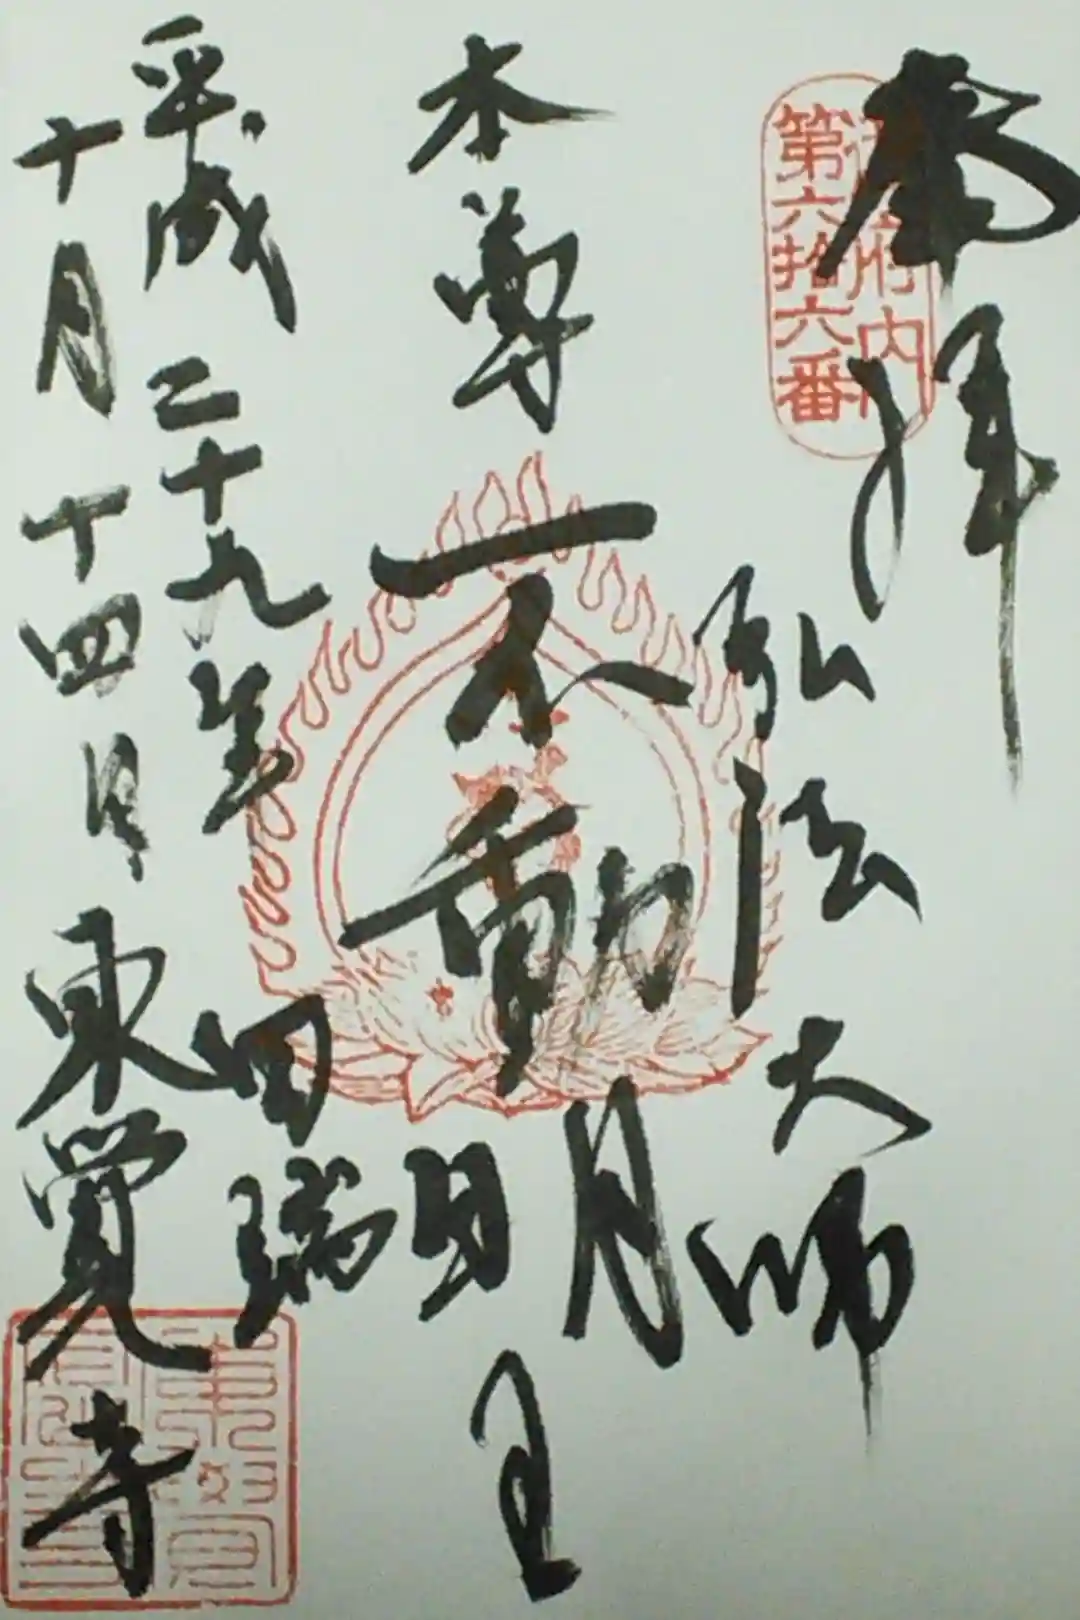 奉拝
御府内
第六拾六番
弘法大師
本尊
不動明王
平成二十九年
十月十四日
田端
東覚寺